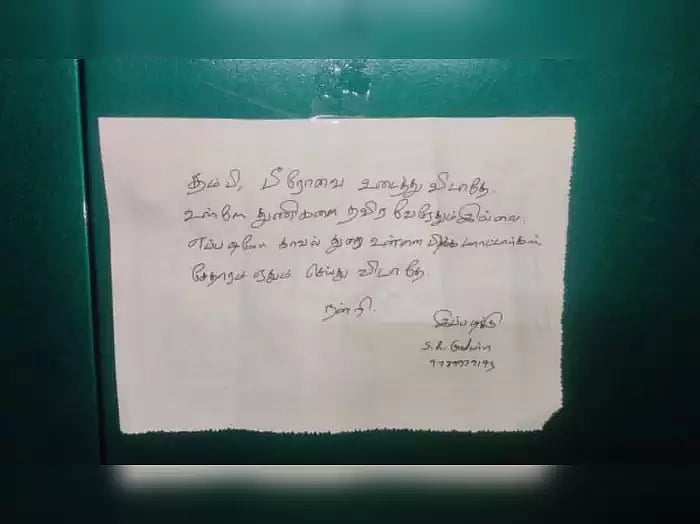 தம்பி, பீரோவை உடைத்து விடாதே.
உள்ளே துணிகளை தவிர வேறேதும் இல்லை.
எப்படியோ காவல் துறை உன்னை பிடிக்க மாட்டார்கள்
சேதாரம் ஏதும் செய்து விடாதே.
நன்றி.
இப்படிக்கு
S. R.